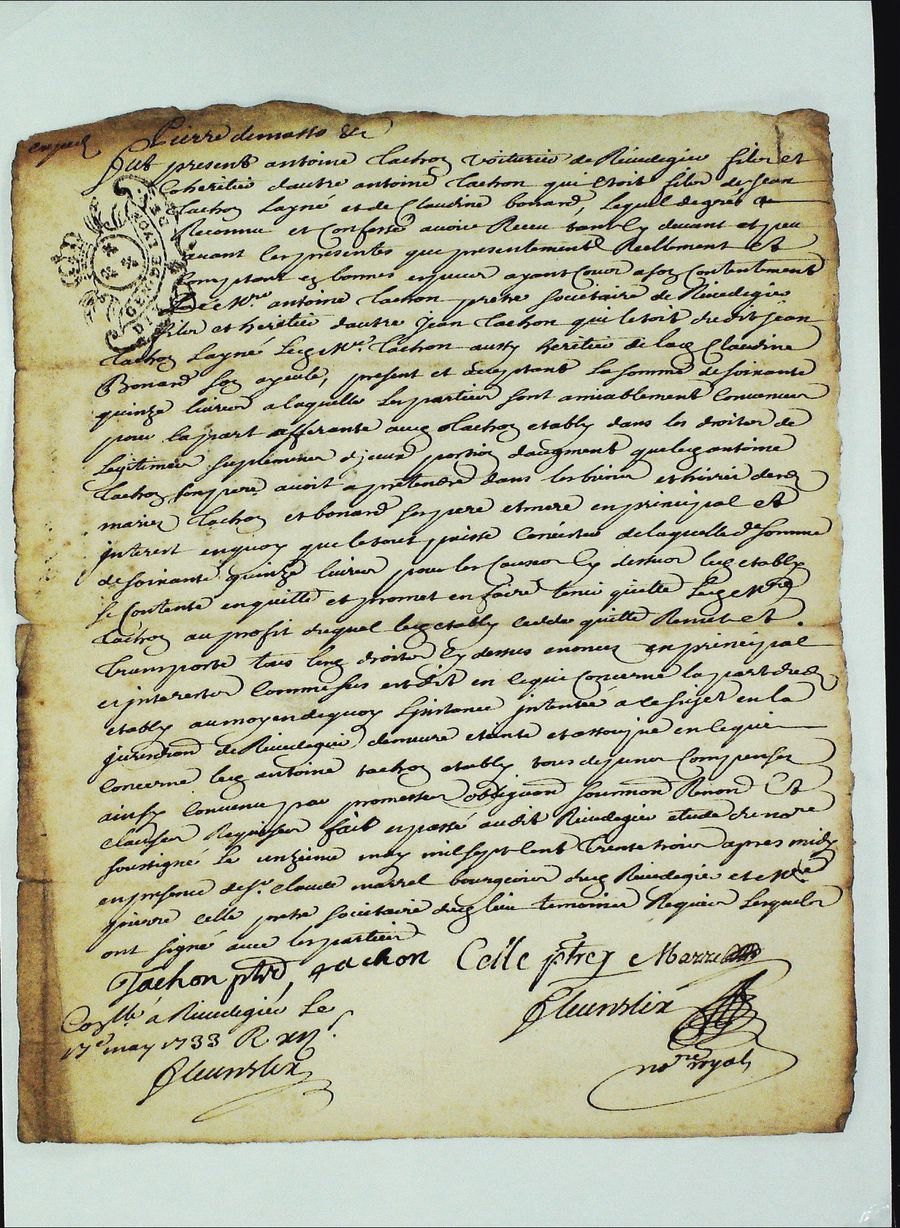 Pierre demasso &c
fut present antoine tachoz voiturier de Rivedegier filz et
coheritier dautre antoine tachon qui etoit filz de Jean
tachoz layné et de Claudine bonard, lequel de gré a
Reconnu et Confessé avoir Receu tant cy devant et peu
avant les presentes que presentement Reellment et
Comptant ez bonnes especes ayant Cour a soz Contentement
De Mre antoine tachon pretre societaire de Rivedegier
filz et heritier dautre Jean tachon qui letoit dudit Jean
tachoz layné Led Mre tachon aussy heritier de lad Claudine
Bonard soz ayeule, present et acceptant la somme de soixante
quinze livres a laquelle les parties sont amiablement Convenues
pour la part afferante aud tachoz etably dans les droits de
Legitimes suplements portion daugment que led antoine
tachoz son pere avoit a pretendre dans les biens et
mariez tachoz et bonard ses pere et mere en principal et
interest en quoy que le tout puisse Consister de laquelle de somme
de soixante quinze livres pour les Causes cy dessus led etably
se Contente en quitte et promet en faire tenir quitte Led Mre
tachoz au profit duquel led etably cedde quitte Remet et
transporte tous sesd droits cy dessus enoncez en principal
et interests Comme sus est dit en ce qui Concerne la part dud
etably au moyen de quoy Linstance intentée a ce sujet en la
juridiction de Rivedegier demeure etainte et assoupie en ce qui
Concerne led antoine tachoz etably tous depens Compensez
ainsy Convenu par promesses obligaons soumons Renons et
clauses Requises fait et passé audit Rivedegier etude du nore
soussigné Le unzieme may mil sept cent trente trois apres midy
en presence de Sr Claude marrel bourgeois dud Rivedegier et Mre
pierre celle pretre societaire dud lieu temoins Requis Lesquels
ont signé avec les parties
Tachon ptre, tachon Celle ptre Marrel
Conllé à Rivedegier Le
17e may 1733 R
Fleurdelix
Fleurdelix
nore royal
GENER DE LYON